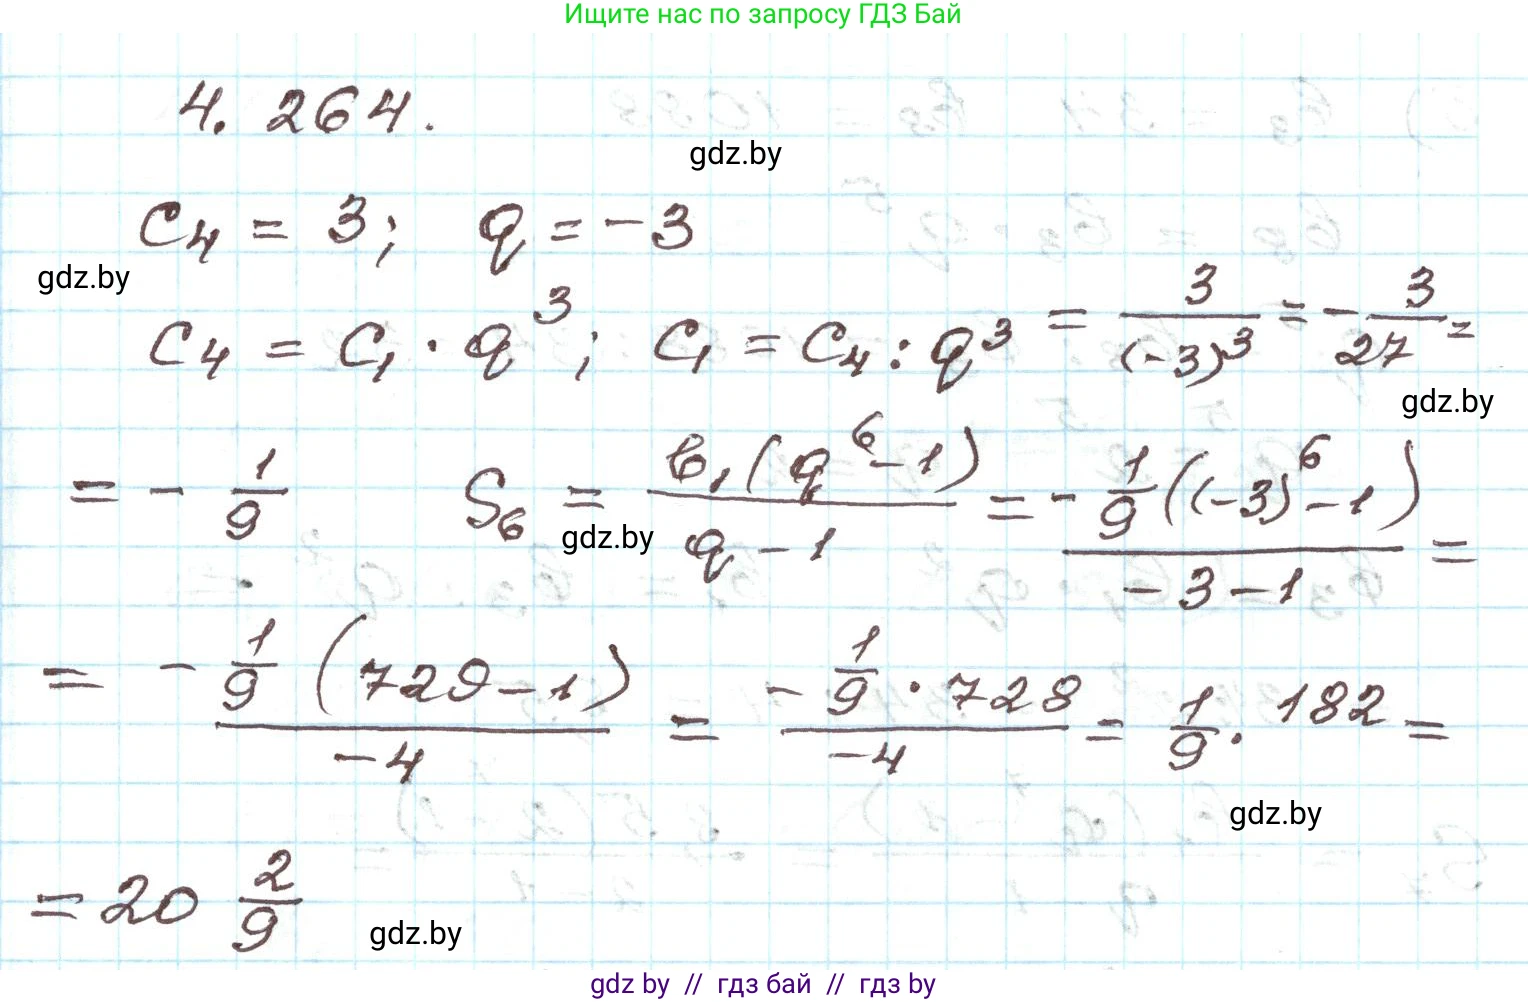 Ищите нас по запросу ГДЗ Бай
4. 264.
gdz.by
C₄ = 3; q = -3
gdz.by
C₄ = C₁ · q³; C₁ = C₄ : q³ = 3/(-3)³ = - 3/27 =
gdz.by
= - 1/9 S₆ = b₁(q⁶-1)/(q-1) = - 1/9((-3)⁶-1)/(-3-1) =
gdz.by
= - 1/9 (729-1)/(-4) = - 1/9 · 728/(-4) = 1/9 · 182 =
gdz.by
= 20 2/9
gdz.by
gdz by // гдз бай // gdz by